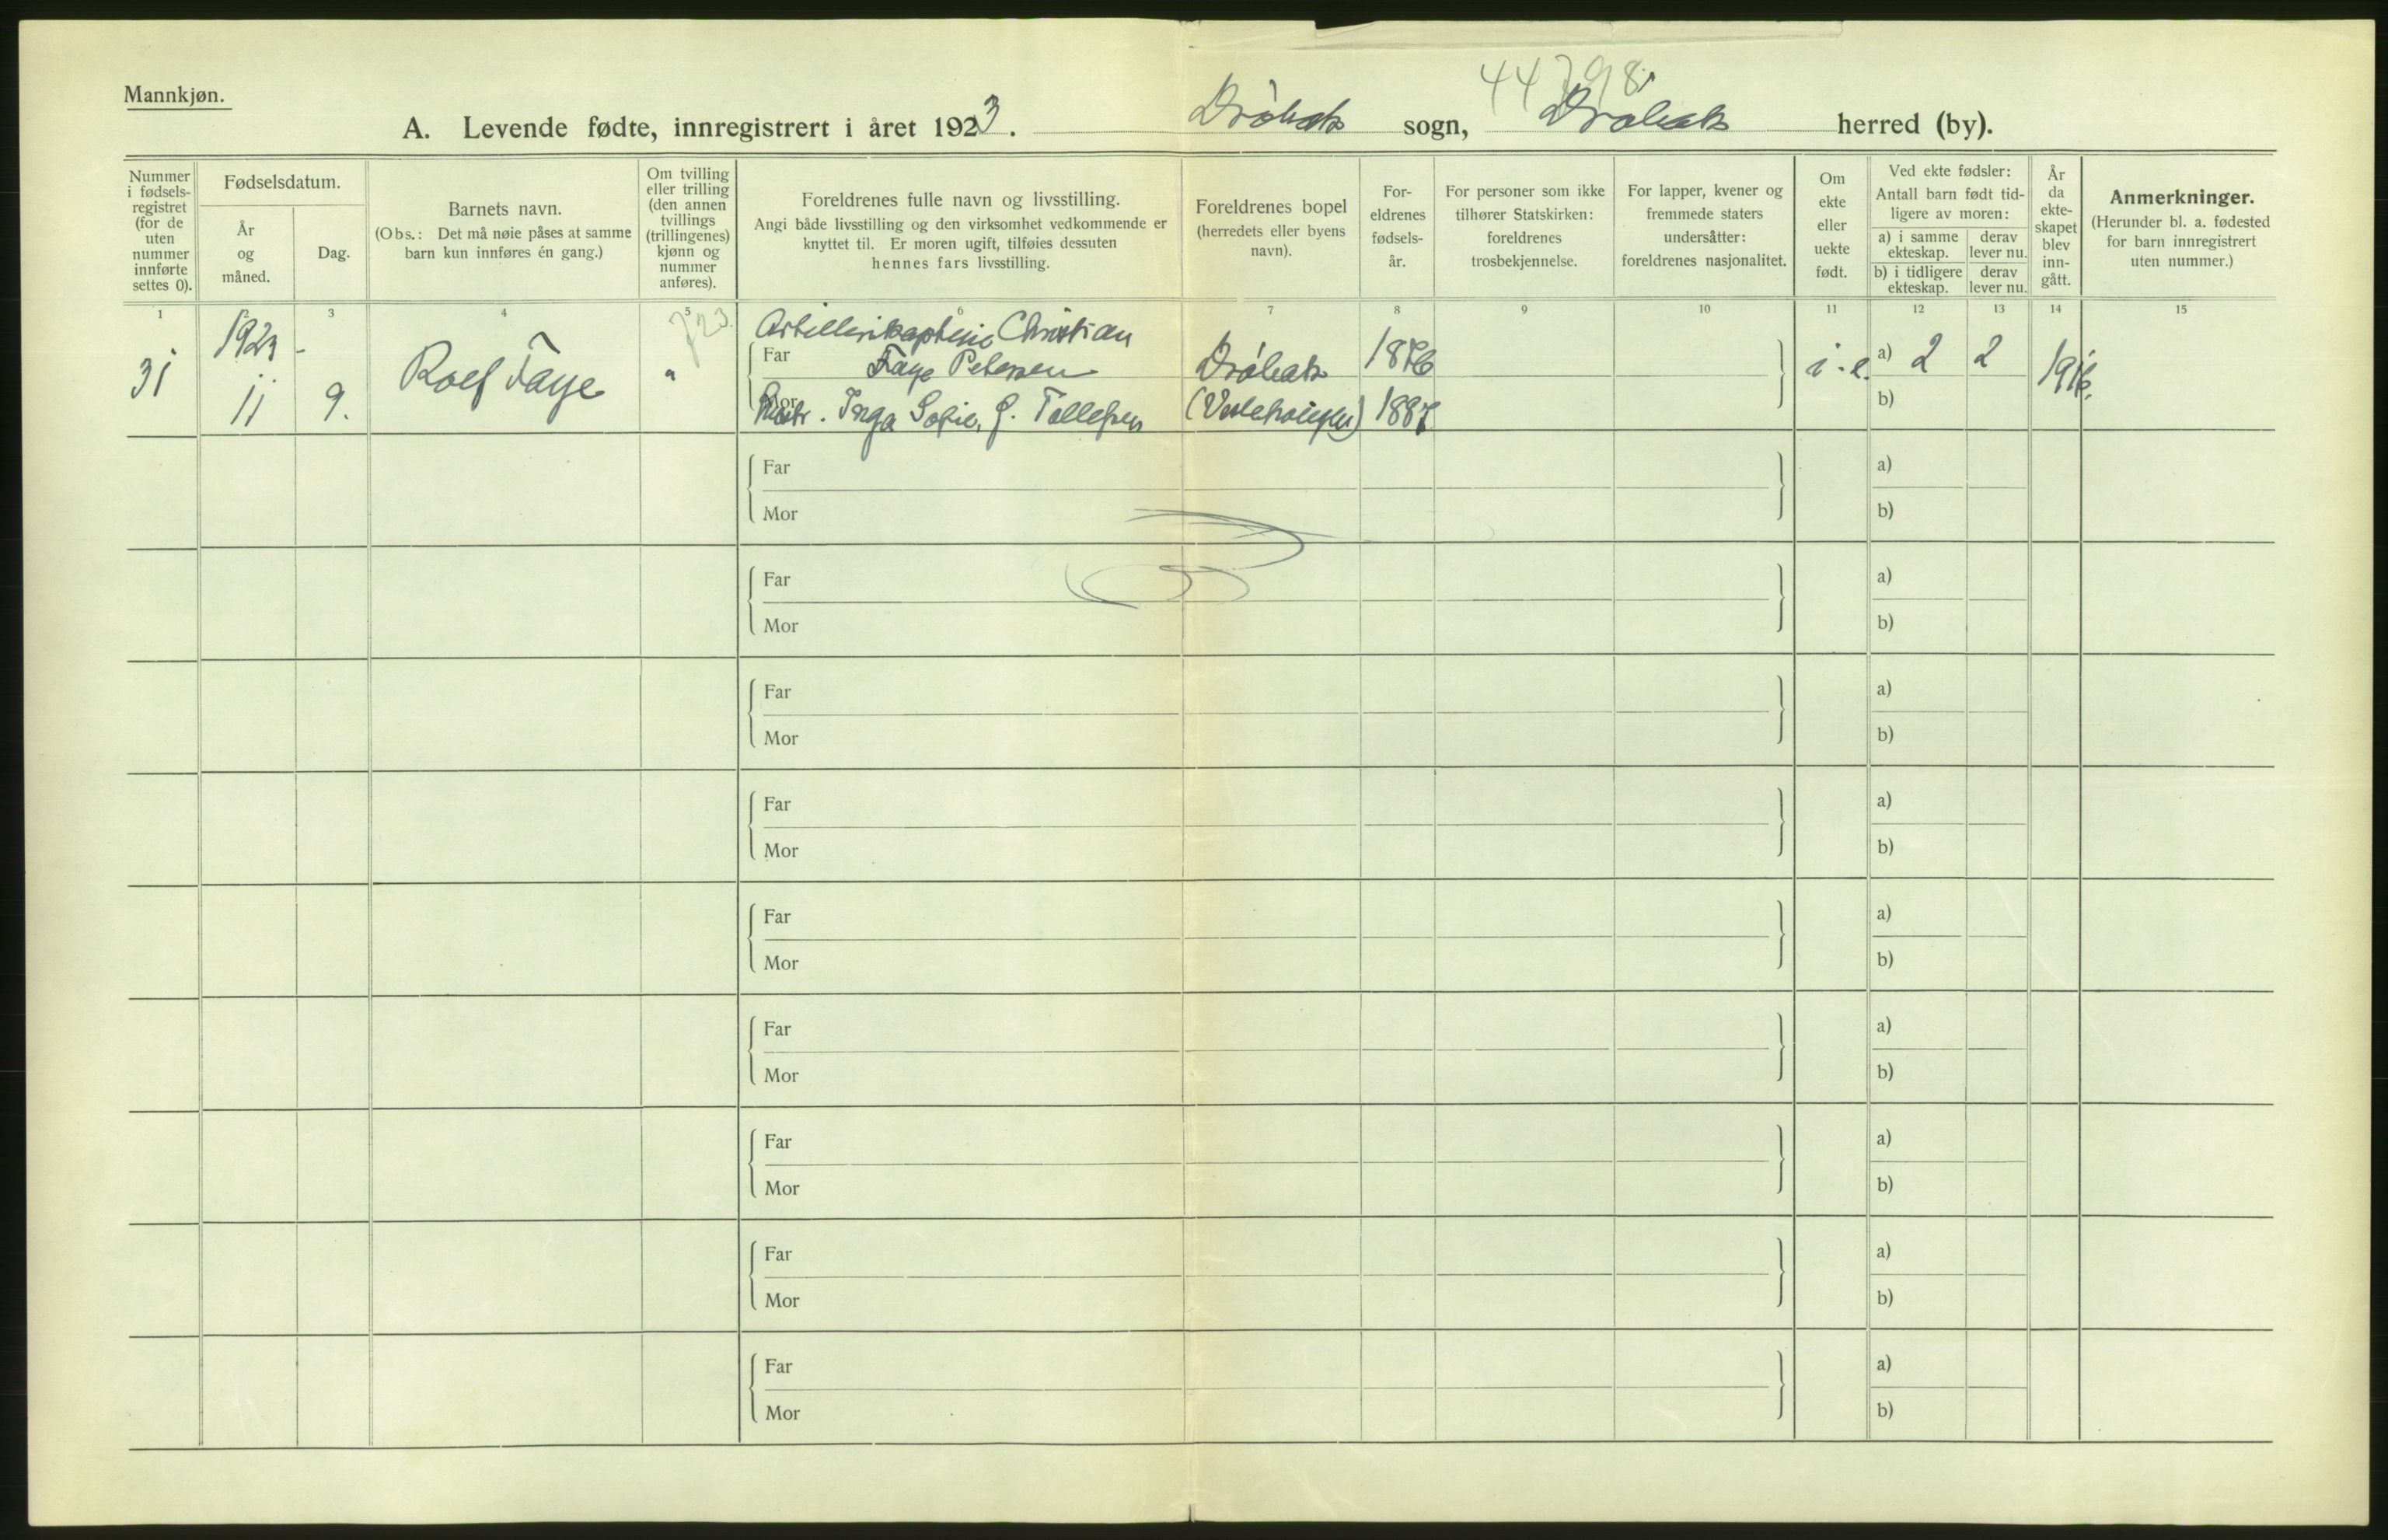 Mannkjøn.
44798
A. Levende fødte, innregistrert i året 1923. Drøbak sogn, Drøbak herred (by).
Nummer i fødsels- registret (for de uten nummer innførte settes 0).
Fødselsdatum.
År og måned.
Dag.
Barnets navn.
(Obs.: Det må nøie påses at samme barn kun innføres én gang.)
Om tvilling eller trilling (den annen tvillings (trillingenes) kjønn og nummer anføres).
Foreldrenes fulle navn og livsstilling.
Angi både livsstilling og den virksomhet vedkommende er knyttet til. Er moren ugift, tilføies dessuten hennes fars livsstilling.
Foreldrenes bopel (herredets eller byens navn).
For- eldrenes fødsels- år.
For personer som ikke tilhører Statskirken: foreldrenes trosbekjennelse.
For lapper, kvener og fremmede staters undersåtter: foreldrenes nasjonalitet.
Om ekte eller uekte født.
Ved ekte fødsler:
Antall barn født tid- ligere av moren:
a) i samme ekteskap.
derav lever nu.
b) i tidligere ekteskap.
derav lever nu.
År da ekte- skapet blev inn- gått.
Anmerkninger.
(Herunder bl. a. fødested for barn innregistrert uten nummer.)
1 2 3 4 5 6 7 8 9 10 11 12 13 14 15
723.
31 1923 - 11 9. Rolf Faye "
Artillerikaptein Christian
Far Faye Petersen Drøbak 1876 i. e. a) 2 2 1916.
Mor Hustr. Inga Sofie, f. Tollefsen 1887 b)
Far a)
Mor b)
Far a)
Mor b)
Far a)
Mor b)
Far a)
Mor b)
Far a)
Mor b)
Far a)
Mor b)
Far a)
Mor b)
Far a)
Mor b)
Far a)
Mor b)